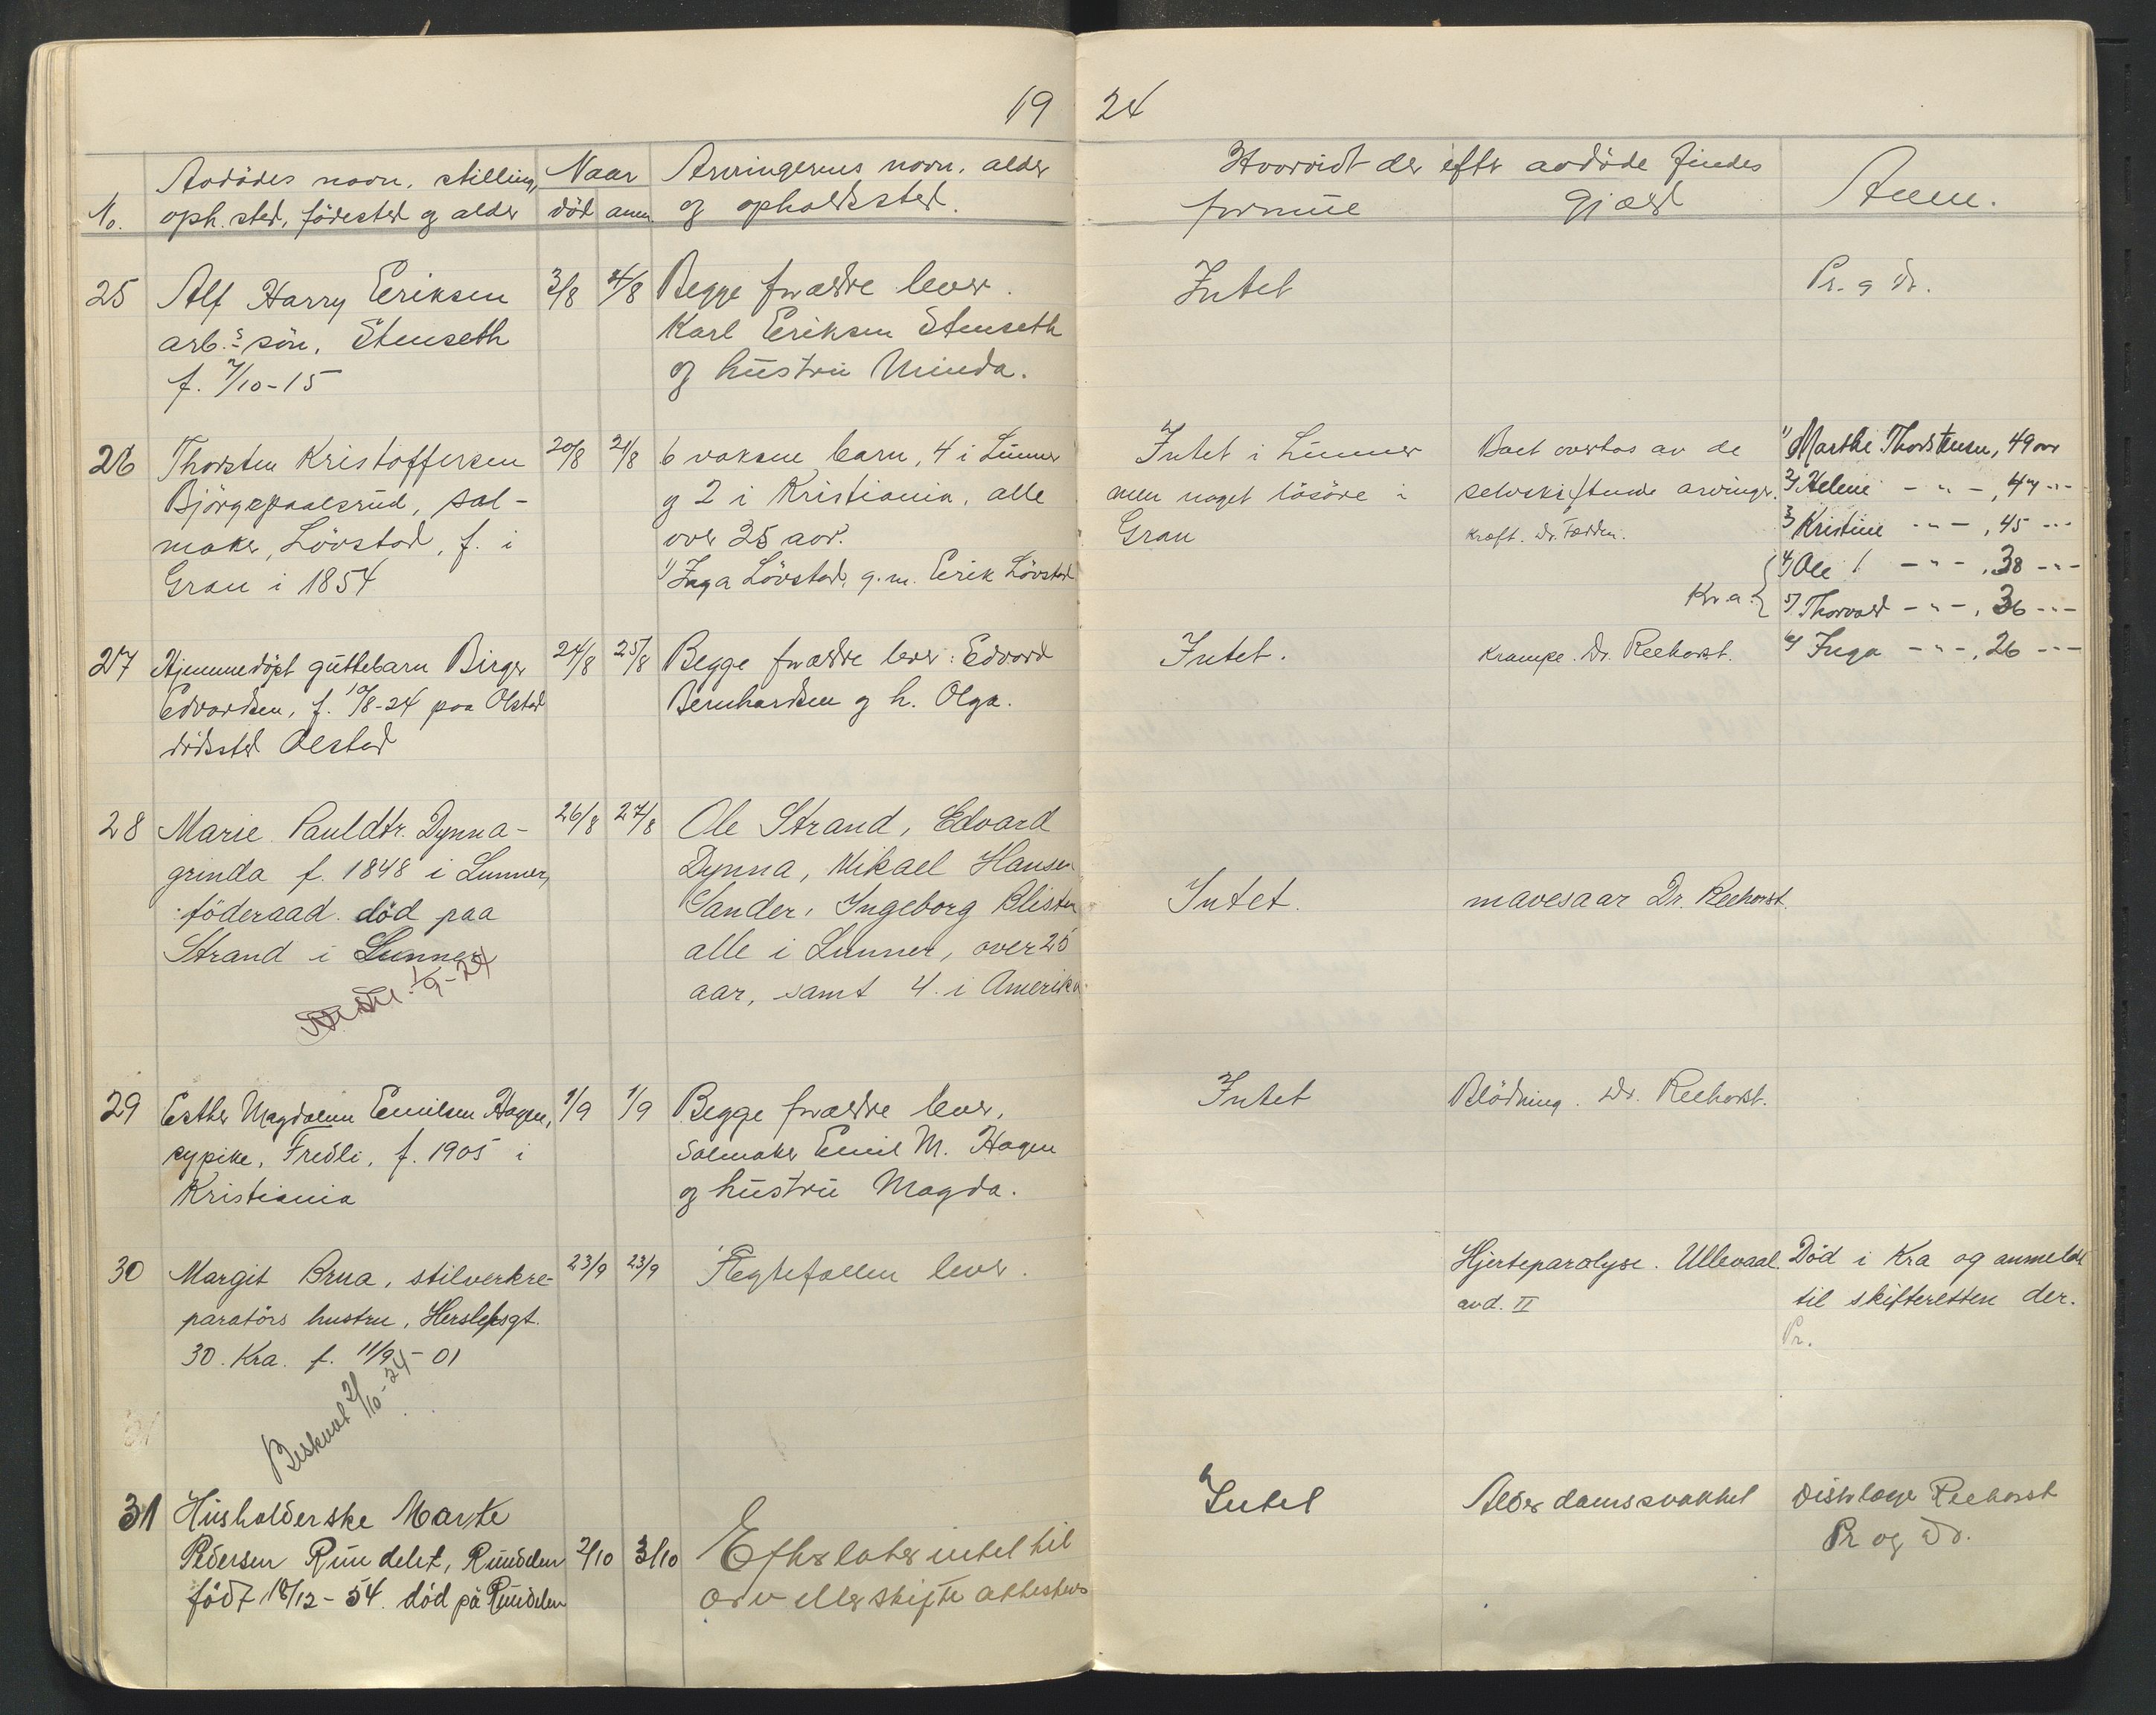 19 24
No.
Avdödes navn, stilling,
oph. sted, födested og alder
Naar
död anm
Arvingernes navn, alder
og opholdssted.
Hvorvidt der efter avdöde findes
formue
gjæld
Anm.
25
Alf Harry Eriksen
arb.s sön, Stenseth
f. 7/10-15
3/8
4/8
Begge forældre lever.
Karl Eriksen Stenseth
og hustru Minda.
Intet
Pr. og Dr.
26
Thorsten Kristoffersen
Björgepaalsrud, sal-
maker, Lövstad, f. i
Gran i 1854
20/8
21/8
6 voksne barn, 4 i Lunner
og 2 i Kristiania, alle
over 25 aar.
1) Inga Lövstad, g.m. Erik Lövstad
Intet i Lunner
men noget lösöre i
Gran
Boet overtas av de
selvskiftende arvinger.
Kræft. Dr. Fodden.
1) Marthe Thorstensen, 49 aar
2) Helene - " - , 47 - " -
3) Kristine - " - , 45 - " -
Kra. { 4) Ole - " - , 38 - " -
5) Thorvald - " - , 36 - " -
6) Inga - " - , 26 - " -
27
Hjemmedöpt guttebarn Birger
Edvardsen, f. 10/8-24 paa Olstad
dödssted Olstad
24/8
25/8
Begge forældre lever: Edvard
Bernhardsen og h. Olga.
Intet.
Krampe. Dr. Reehorst.
28
Marie Pauldtr. Dynna-
grinda f. 1848 i Lunner,
föderaad. död paa
Strand i Lunner
1/9-24
26/8
27/8
Ole Strand, Edvard
Dynna, Mikael Hansen
Sander, Ingeborg Blisten
alle i Lunner, over 25
aar, samt 4 i Amerika.
Intet.
mavesaar Dr. Reehorst.
29
Esther Magdalene Emilsen Hagen,
sypike, Fredli, f. 1905 i
Kristiania
1/9
1/9
Begge forældre lever,
Salmaker Emil M. Hagen
og hustru Magda.
Intet
Blödning. Dr. Reehorst.
30
Margit Brua, stilverkre-
paratörs hustru, Herslebsgt.
30. Kra. f. 11/9-01
Beskuet 2/10-24
23/9
23/9
Ægtefællen lever.
Hjerteparalyse. Ullevaal
avd. II
Död i Kra og anmeldt
til skifteretten der.
Pr.
31
31
Husholderske Marte
Pedersen Rundelet, Rundelen
födt 18/12-54. död på Rundelen
2/10
3/10
Efterlater intet til
arv eller skifte attesteres
Intet
Alderdomssvakhet
Distrlæge Reehorst
Pr og Dd.